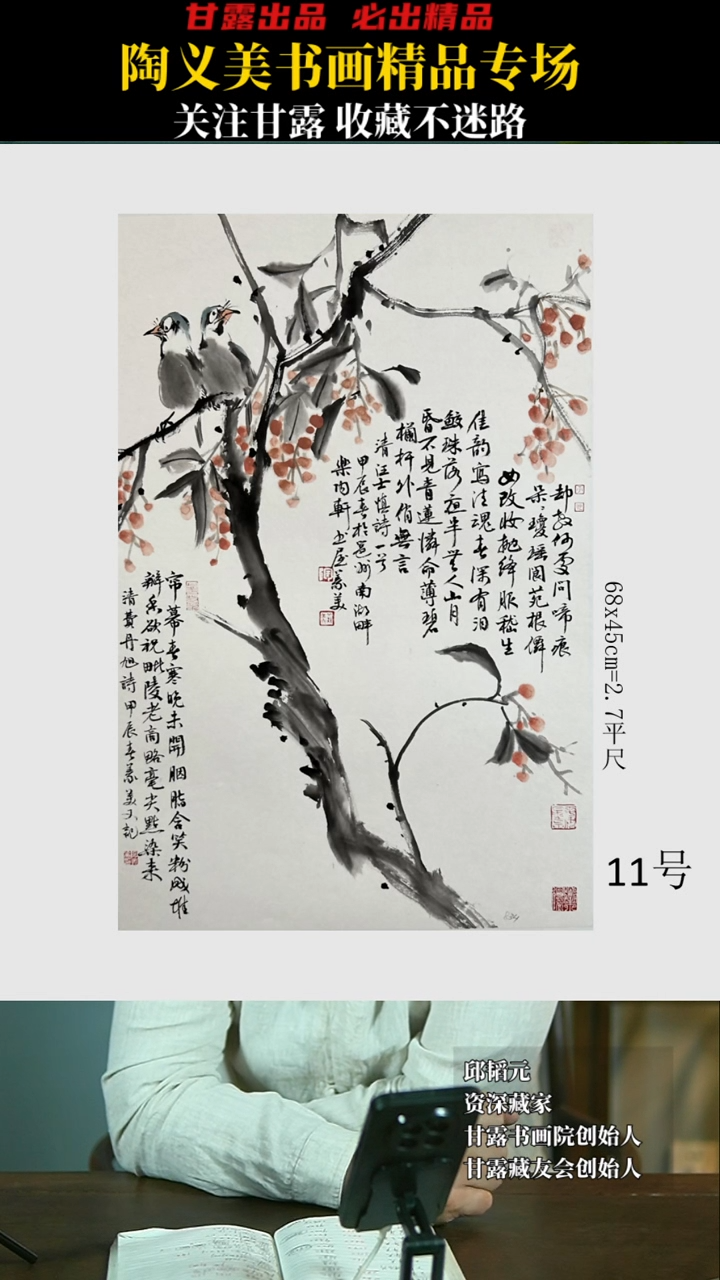 甘露出品 必出精品
陶义美书画精品专场
关注甘露 收藏不迷路
却教何处问啼痕
呆呆琼瑶阆苑根僻
女改妆抛绛服嵇生
佳韵写清魂春深有泪
鲛珠落夜半无人山月
昏不见青莲怜命薄碧
栏杆外俏无言
清汪士慎诗一首
甲辰春於邕州南湖畔
乐陶轩书屋义美
帘幕春寒晚未開胭脂含笑粉成堆
辩香欲祝毗陵老商略毫尖點染来
清費丹旭詩甲辰春义美又记
68x45cm=2.7平尺
11号
邱韬元
资深藏家
甘露书画院创始人
甘露藏友会创始人